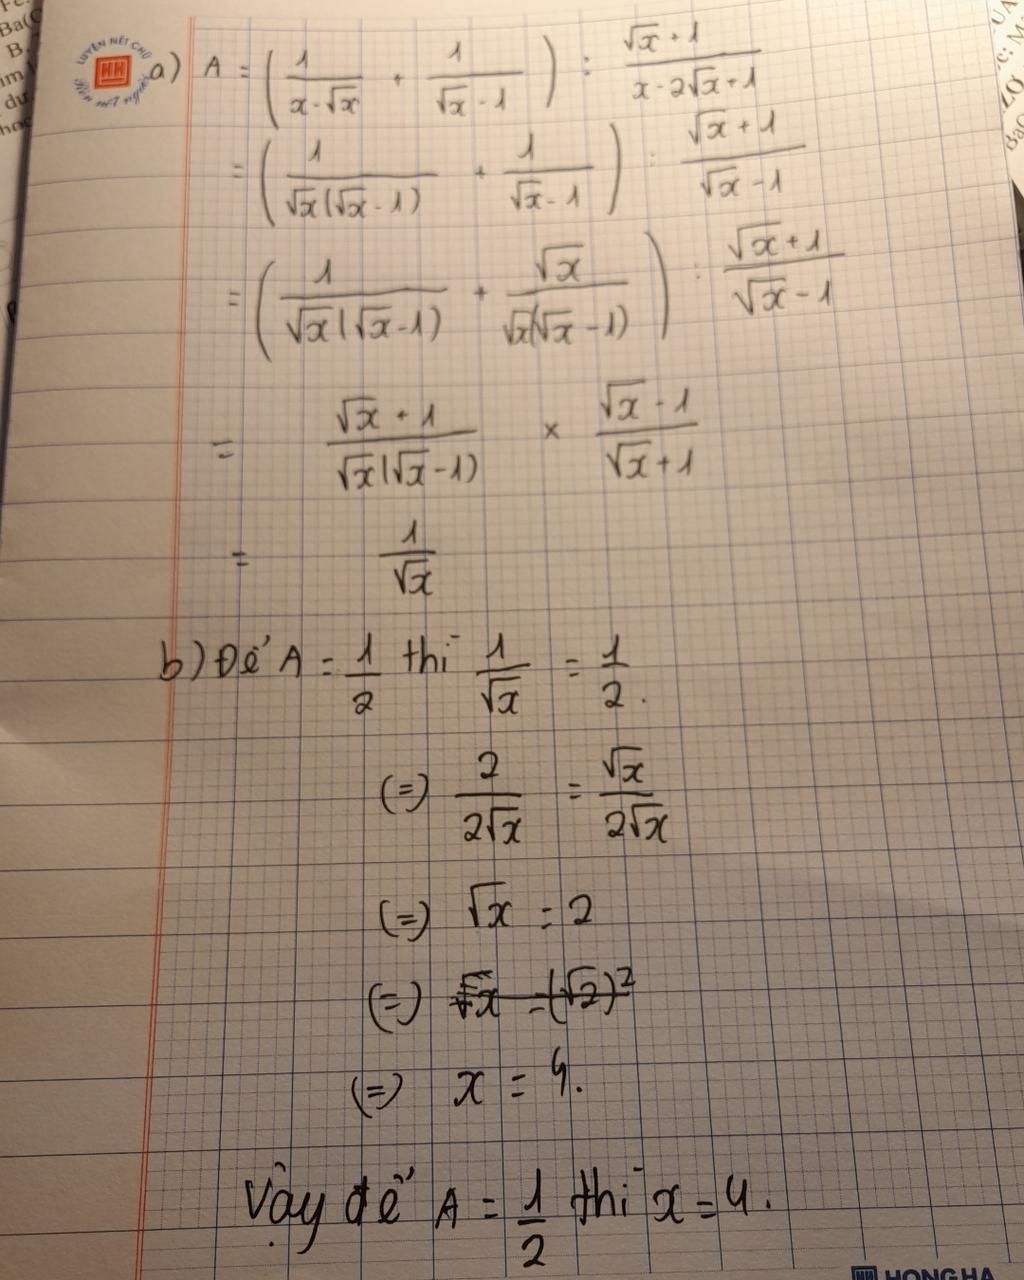 LUYỆN NÉT CHỮ
HH
Rèn nết người
a) A = (1/(x - √x) + 1/(√x - 1)) : (√x + 1)/(x - 2√x + 1)
= (1/(√x(√x - 1)) + 1/(√x - 1)) : (√x + 1)/(√x - 1)
= (1/(√x(√x - 1)) + √x/(√x(√x - 1))) : (√x + 1)/(√x - 1)
= (√x + 1)/(√x(√x - 1)) × (√x - 1)/(√x + 1)
= 1/√x
b) Để A = 1/2 thì 1/√x = 1/2.
(=) 2/(2√x) = √x/(2√x)
(=) √x = 2
(=) √x = (√2)²
(=) x = 4.
Vậy để A = 1/2 thì x = 4.
HONG HA